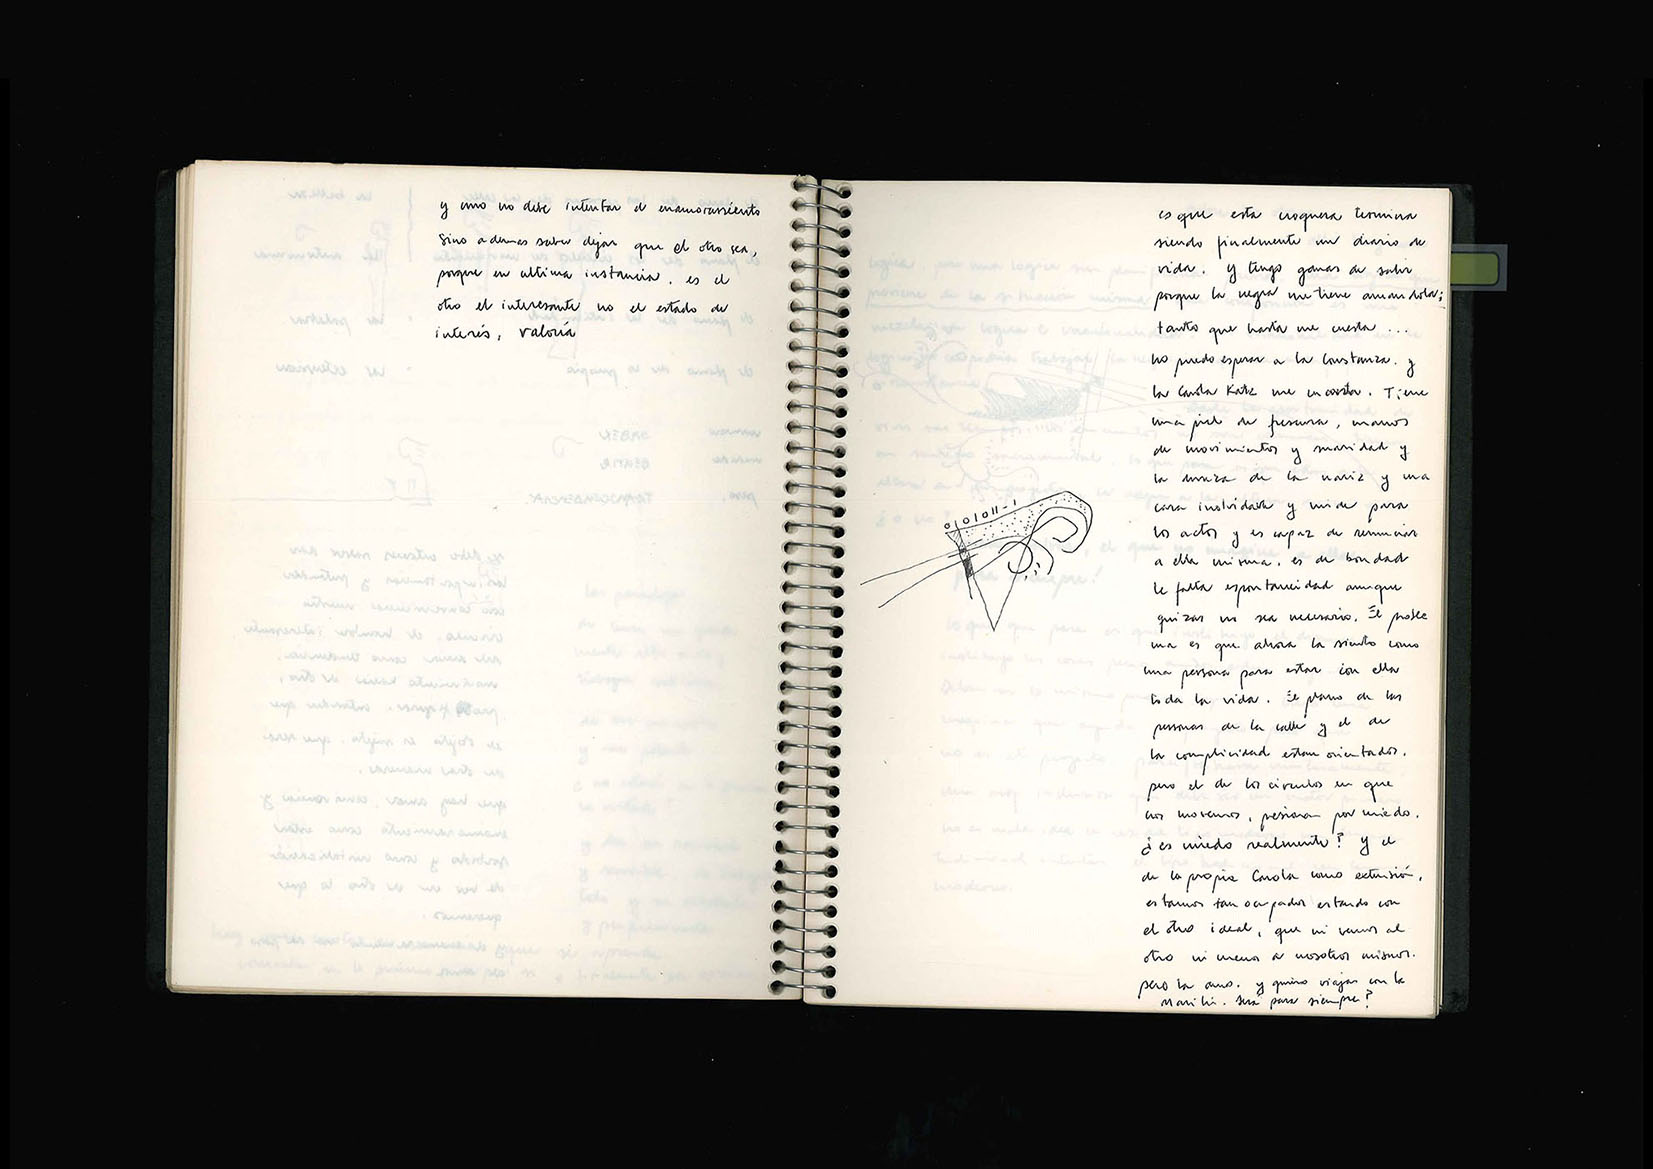 y uno no debe intentar el enamoramiento
sino ademas saber dejar que el otro sea,
porque en ultima instancia. es el
otro el interesante no el estado de
interés, valoría
es que esta croquera termina
siendo finalmente un diario de
vida. y tengo ganas de salir
porque la negra me tiene amandola;
tanto que hasta me cuesta ...
no puedo esperar a la Constanza. y
la Carola Katz me encanta. Tiene
una piel de frescura, manos
de movimientos y suavidad y
la dureza de la nariz y una
cara inolvidable y mide para
los actos y es capaz de renunciar
a ella misma. es de bondad
le falta espontaneidad aunque
quizas no sea necesario. El proble
ma es que ahora la siento como
una persona para estar con ella
toda la vida. El plano de las
personas de la calle y el de
la complicidad estan orientados.
pero el de los circulos en que
nos movemos, presionan por miedo.
¿es miedo realmente? y el
de la propia Carola como extensión.
estamos tan ocupados estando con
el otro ideal, que ni vemos al
otro ni menos a nosotros mismos.
pero la amo. y quiero viajar con la
será para siempre?
0 10 1011-1